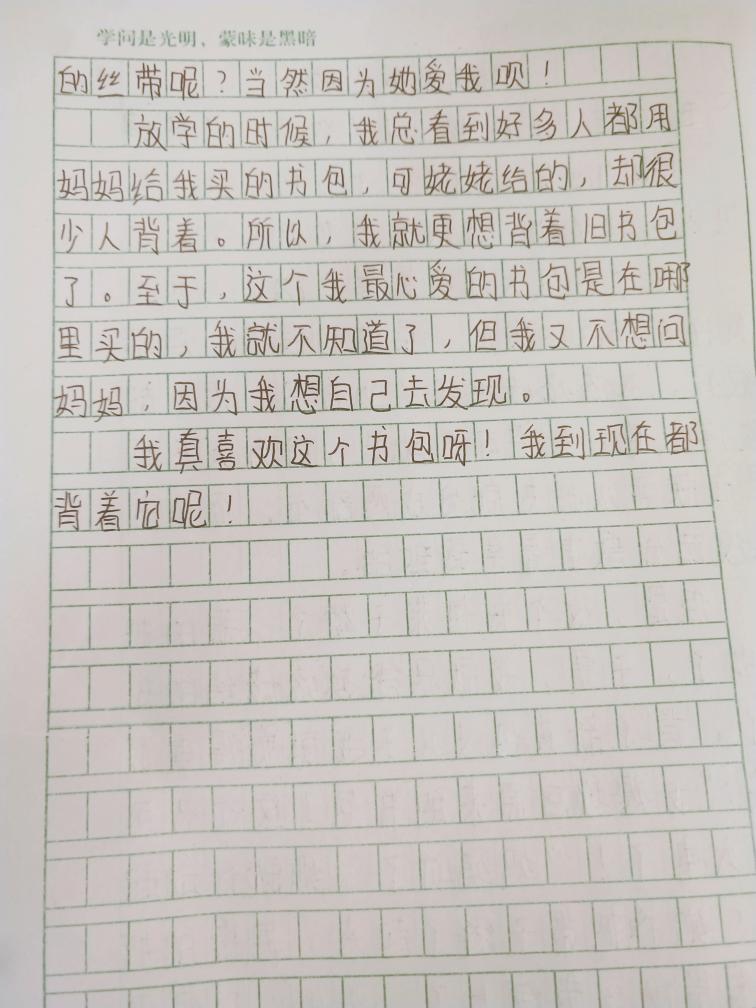 学问是光明，蒙昧是黑暗
的丝带呢？当然因为她爱我呗！
放学的时候，我总看到好多人都用
妈妈给我买的书包，可姥姥给的，却很
少人背着。所以，我就更想背着旧书包
了。至于，这个我最心爱的书包是在哪
里买的，我就不知道了，但我又不想问
妈妈，因为我想自己去发现。
我真喜欢这个书包呀！我到现在都
背着它呢！